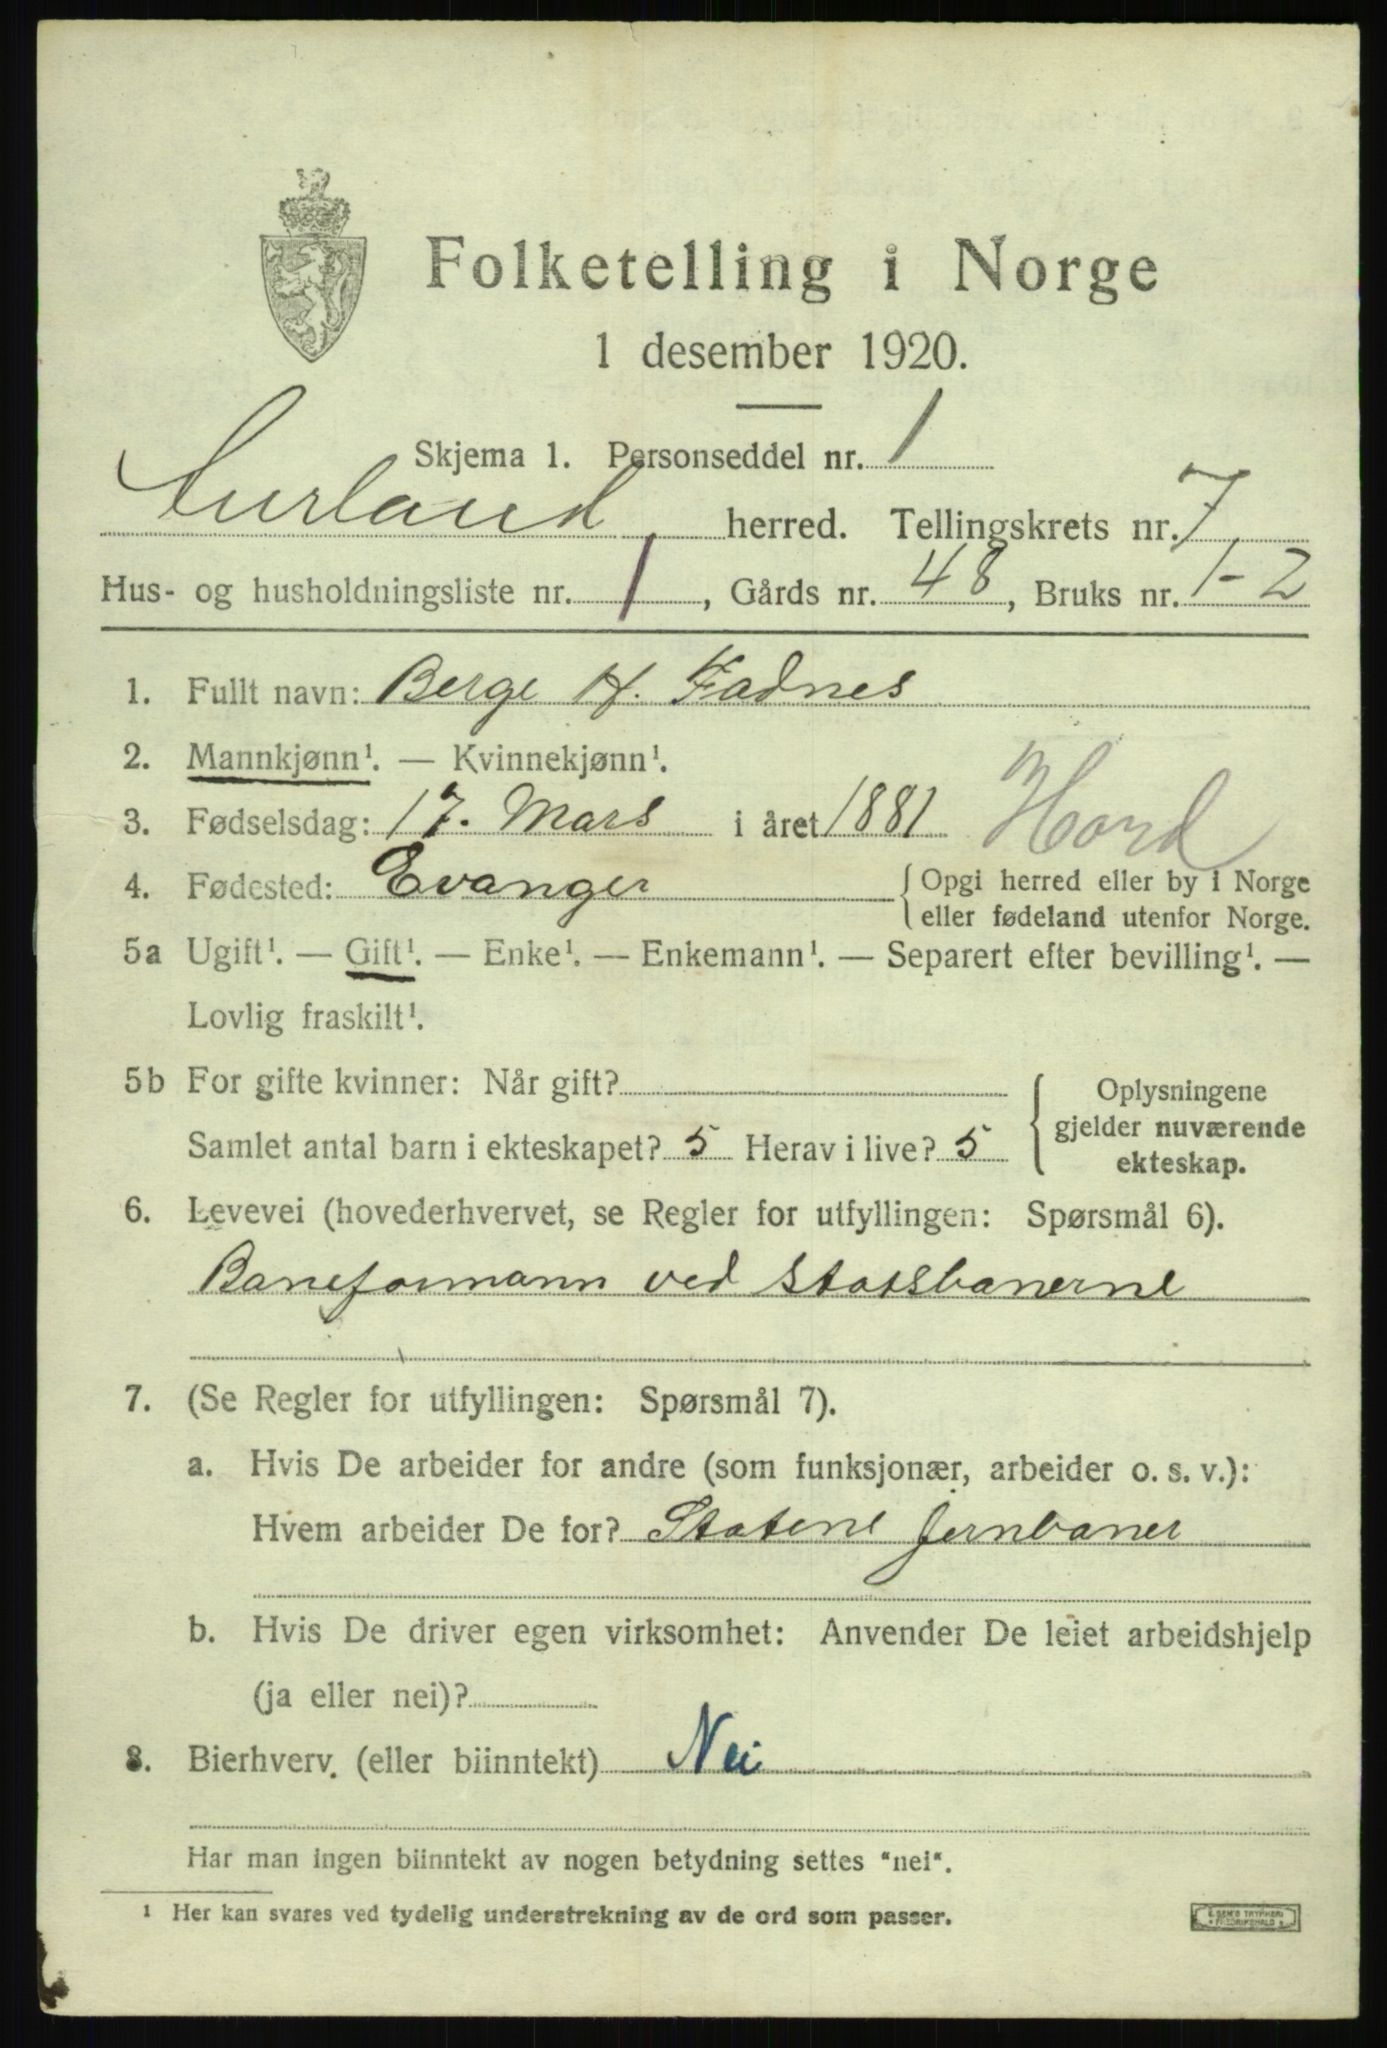 Folketelling i Norge
1 desember 1920.
Skjema 1. Personseddel nr. 1
Aurland herred. Tellingskrets nr. 7
Hus- og husholdningsliste nr. 1, Gårds nr. 48, Bruks nr. 1-2
1. Fullt navn: Berge H. Fadnes
2. Mannkjønn¹. — Kvinnekjønn¹.
3. Fødselsdag: 17. Mars i året 1881 Hord
4. Fødested: Evanger { Opgi herred eller by i Norge
eller fødeland utenfor Norge.
5a Ugift¹. — Gift¹. — Enke¹. — Enkemann¹. — Separert efter bevilling¹. —
Lovlig fraskilt¹.
5b For gifte kvinner: Når gift? { Oplysningene
gjelder nuværende
Samlet antal barn i ekteskapet? 5 Herav i live? 5
ekteskap.
6. Levevei (hovederhvervet, se Regler for utfyllingen: Spørsmål 6).
Baneformann ved Statsbanerne
7. (Se Regler for utfyllingen: Spørsmål 7).
a. Hvis De arbeider for andre (som funksjonær, arbeider o. s. v.):
Hvem arbeider De for? Statene jernbaner
b. Hvis De driver egen virksomhet: Anvender De leiet arbeidshjelp
(ja eller nei)?
8. Bierhverv (eller biinntekt) Nei
Har man ingen biinntekt av nogen betydning settes "nei".
¹ Her kan svares ved tydelig understrekning av de ord som passer.